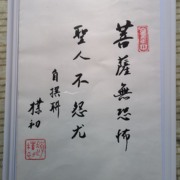 菩薩無恐怖
聖人不怨尤
自撰聯